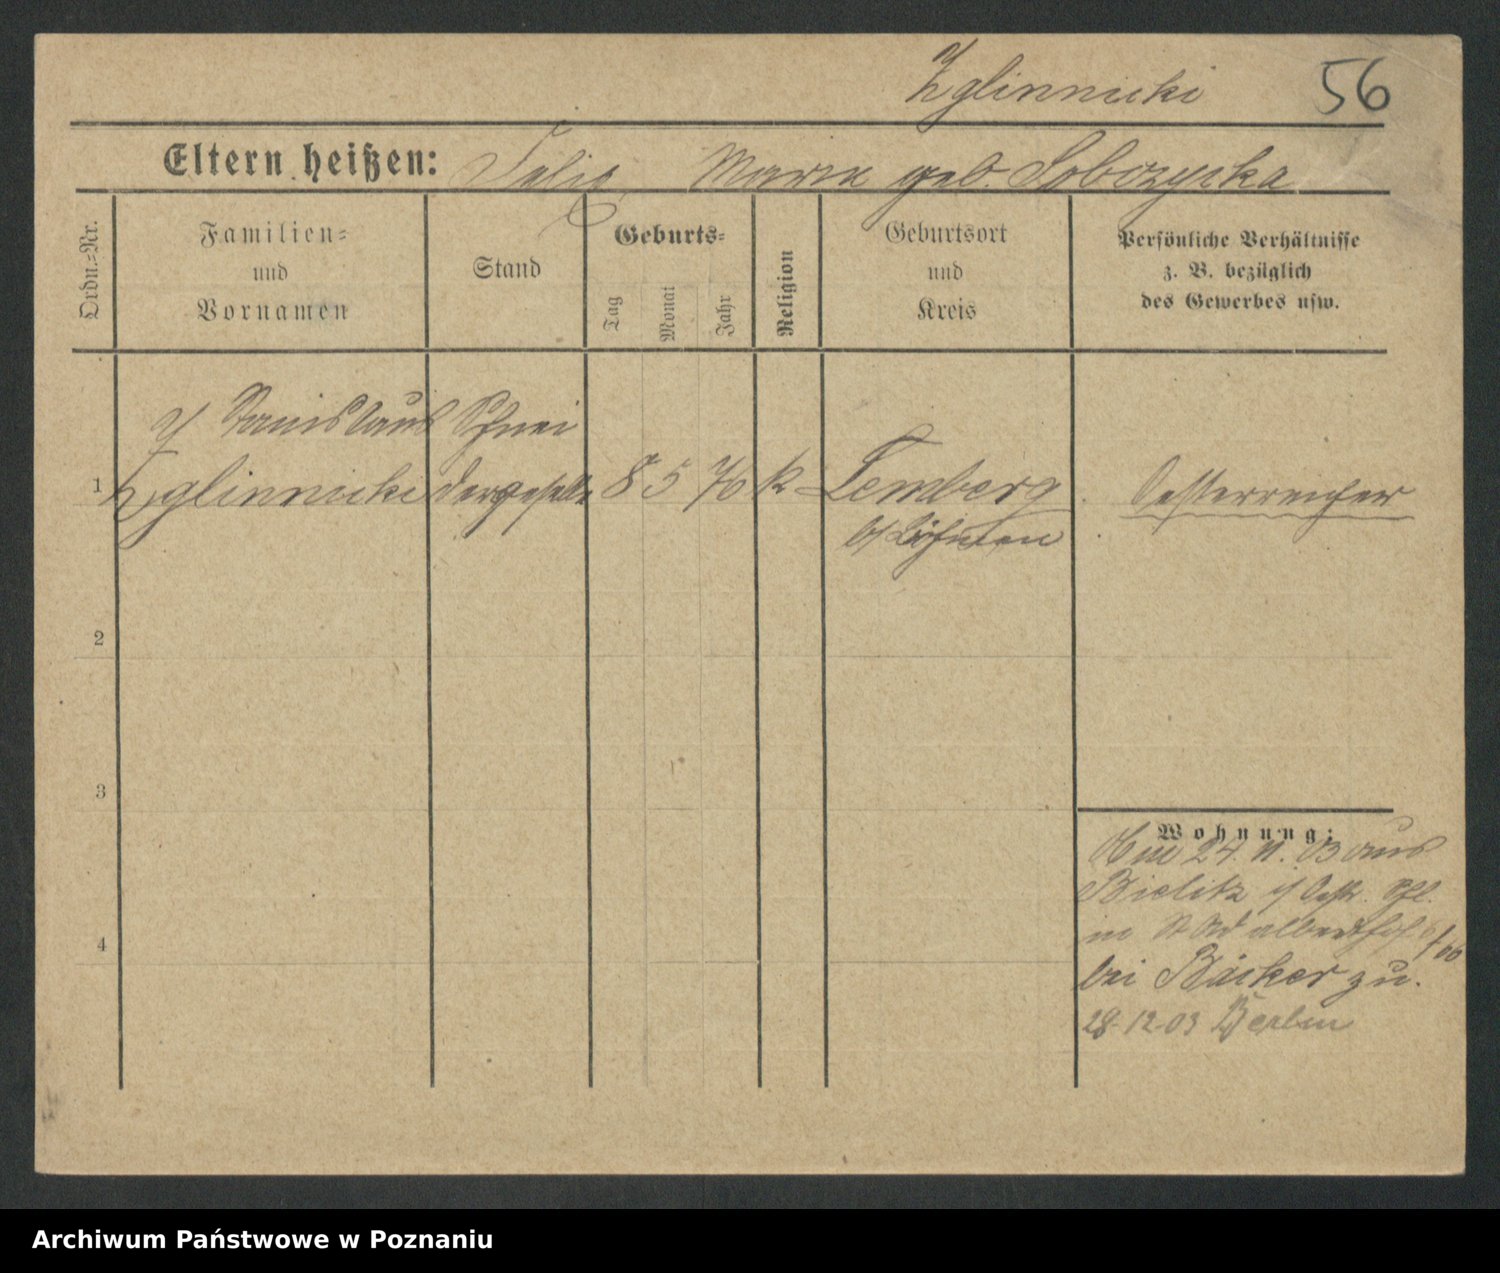 Zglinnicki 56
Eltern heißen: Felix Maria geb. Sobczycka
Ordn.-Nr.
Familien-
und
Vornamen
Stand
Geburts-
Tag
Monat
Jahr
Religion
Geburtsort
und
Kreis
Persönliche Verhältnisse
z. B. bezüglich
des Gewerbes usw.
Stanislaus Schnei
1 Zglinnicki dergeselle 8 5 76 k Lemberg Oesterreicher
Böhmen
2
3
4
Wohnung:
Am 24. 11. 03 aus
Bielitz i/ Oestr. Schl.
in St Adalbertstr.
bei Bäcker zu.
28-12-03 Berlin
Archiwum Państwowe w Poznaniu